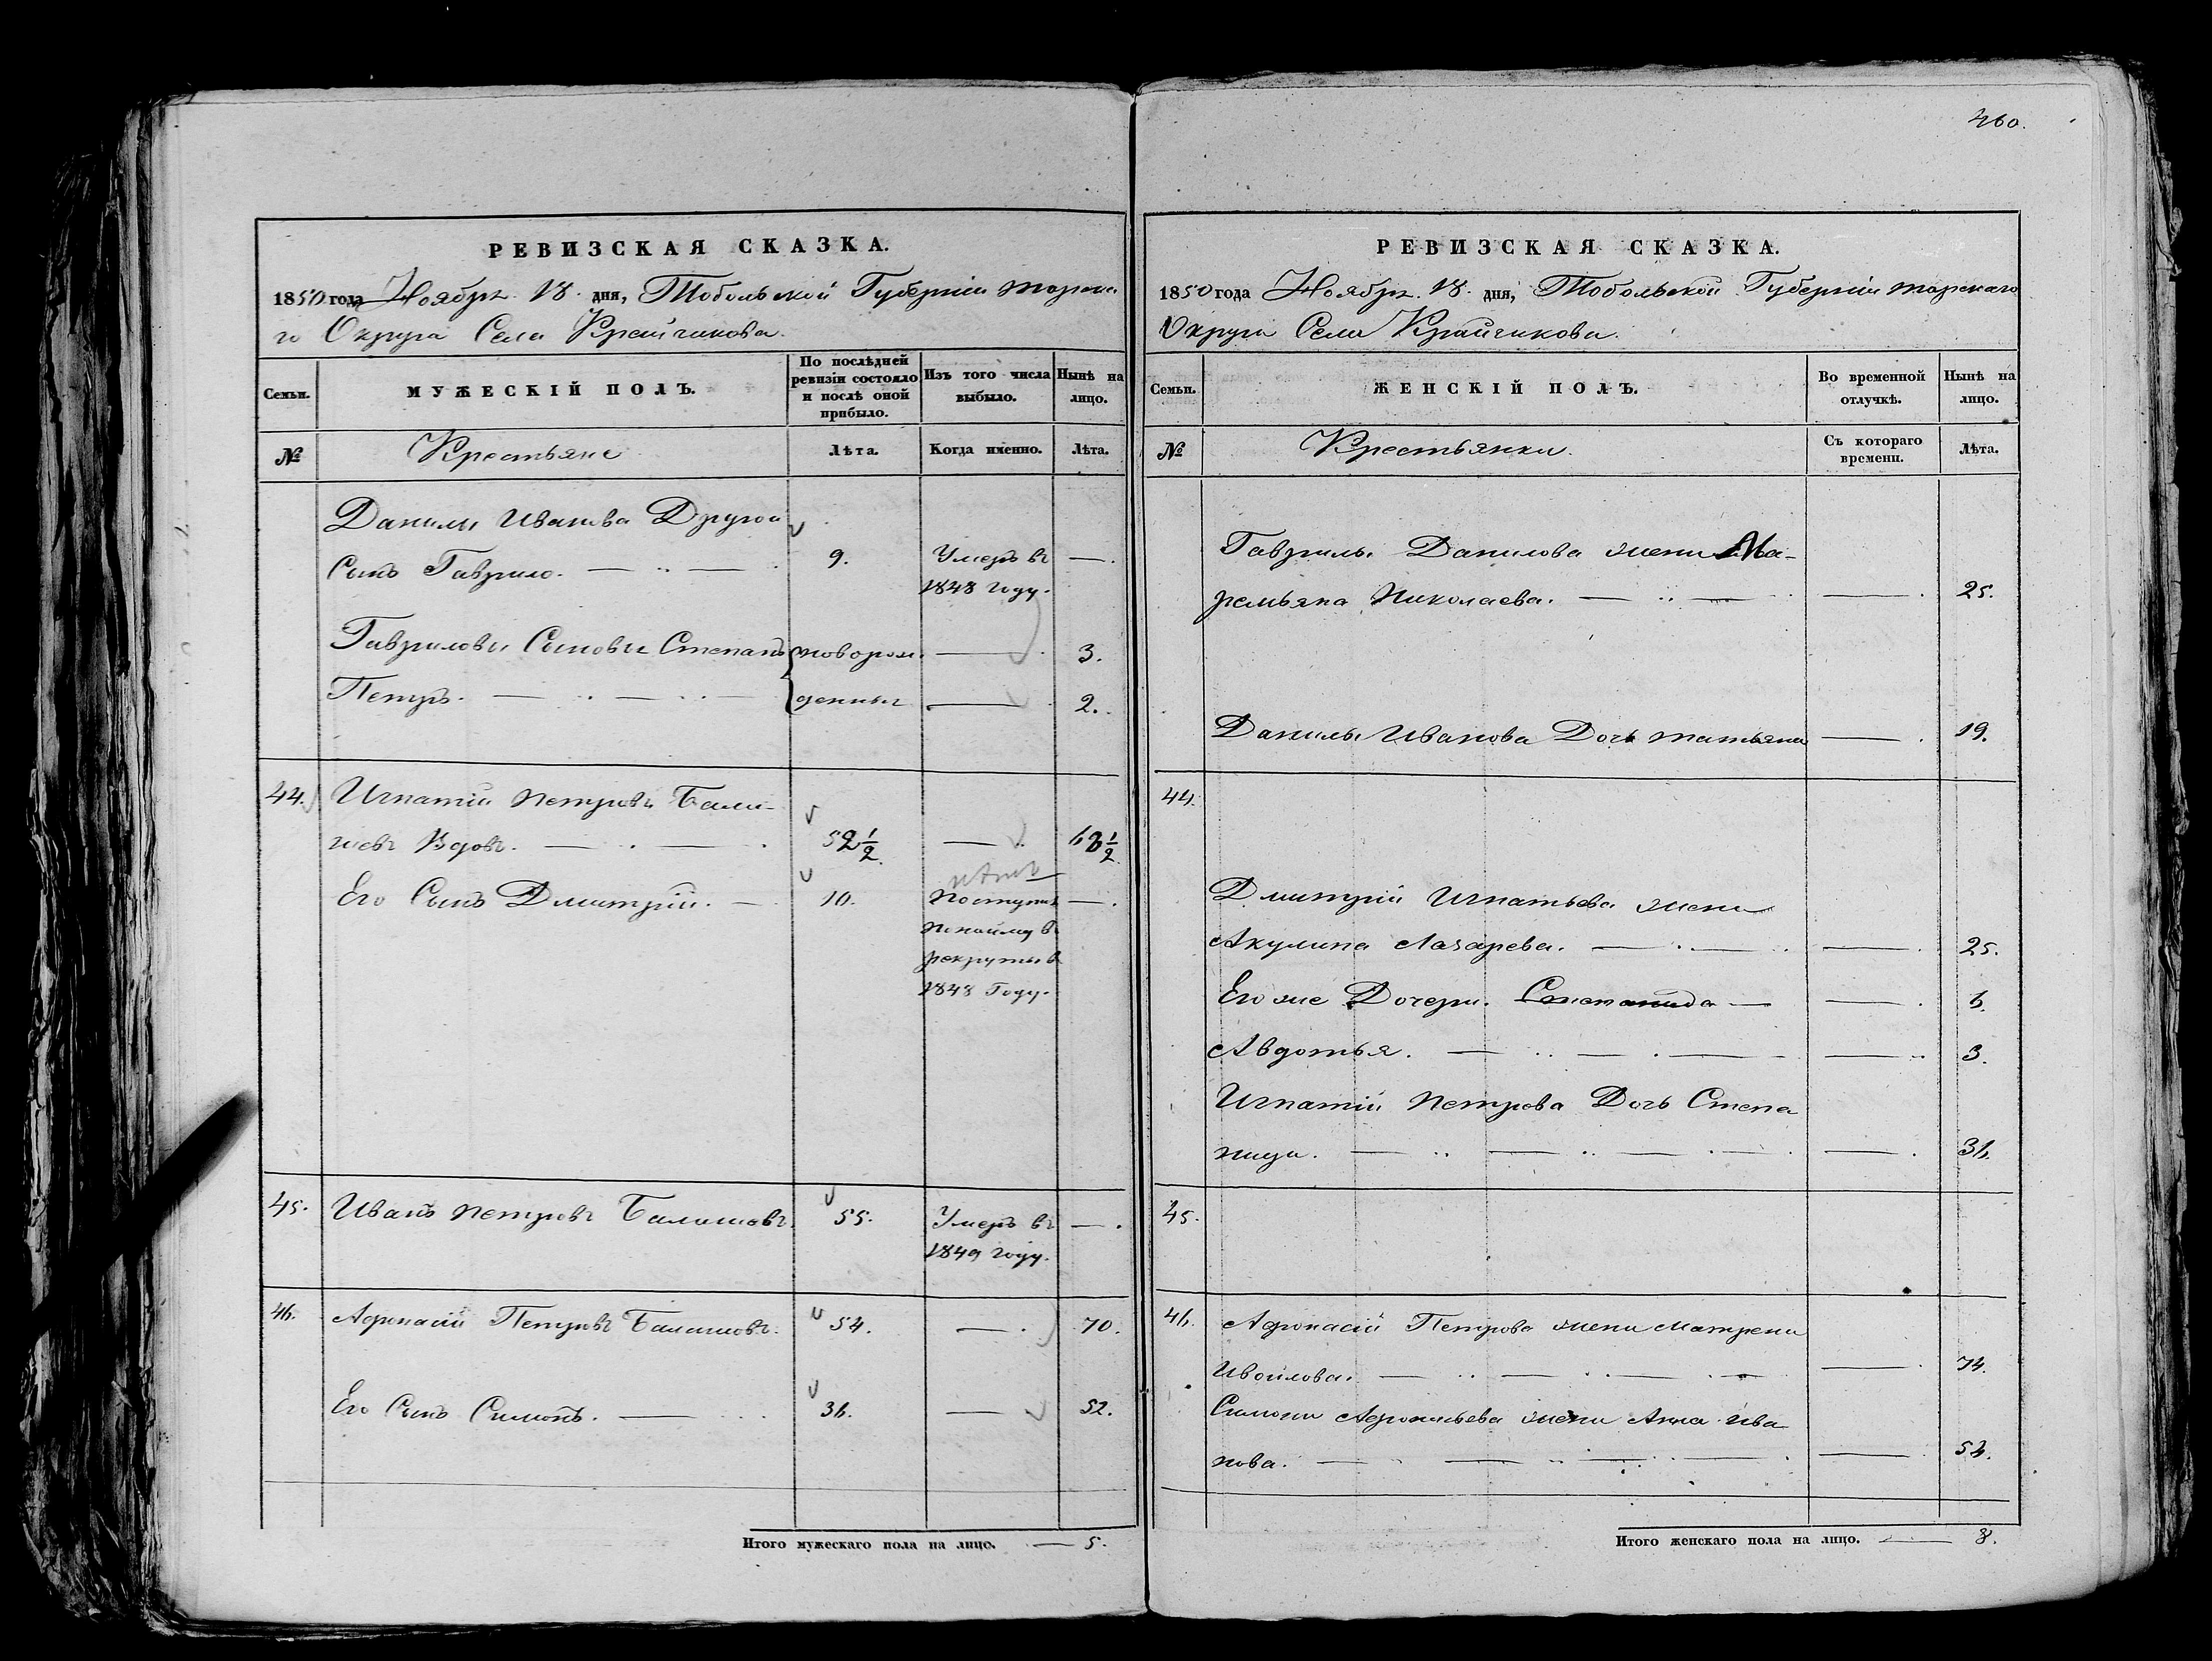 460.
РЕВИЗСКАЯ СКАЗКА.
1850 года Ноября 18 дня, Тобольской Губерніи Тарска
го Округа Села Крайчикова.
Семьи.
МУЖЕСКІЙ ПОЛЪ.
По послѣдней ревизіи состояло и послѣ оной прибыло.
Изъ того числа выбыло.
Нынѣ на лицо.
№
Крестьяне
Лѣта.
Когда именно.
Лѣта.
Данилы Иванова Другой
Сынъ Гаврило. 9. Умеръ въ —.
1848 году.
Гавриловы Сыновья Степанъ новорож. — 3.
Петръ. денные — 2.
44. Игнатій Петровъ Бали-
шевъ Вдовъ. 52 1/2 — 68 1/2
Его Сынъ Дмитрій. — 10. Поступилъ —.
по найму въ
рекруты в
1848 Году.
45. Иванъ Петровъ Балашовъ. 55. Умеръ въ —.
1849 году.
46. Афонасій Петровъ Балашовъ. 54. —. 70.
Его Сынъ Симонъ. 36. — 52.
Итого мужескаго пола на лицо. — 5.
РЕВИЗСКАЯ СКАЗКА.
1850 года Ноября 18 дня, Тобольской Губерніи Тарскаго
Округа Села Крайчикова.
Семьи.
ЖЕНСКІЙ ПОЛЪ.
Во временной отлучкѣ.
Нынѣ на лицо.
№
Крестьянки.
Съ котораго времени.
Лѣта.
Гаврилы Данилова жена Ма-
ремьяна Николаева. — 25.
Данилы Иванова Дочь Татьяна — 19.
44.
Дмитрій Игнатьева жена
Акулина Лазарева. — 25.
Его же Дочери. Степанида — 6.
Авдотья. — 3.
Игнатій Петрова Дочь Степа
нида. — 36.
45.
46. Афонасій Петрова жена Матрена
Ивойлова. — 74.
Симона Афонасьева жена Анна Ива
нова. — 54.
Итого женскаго пола на лицо. — 8.